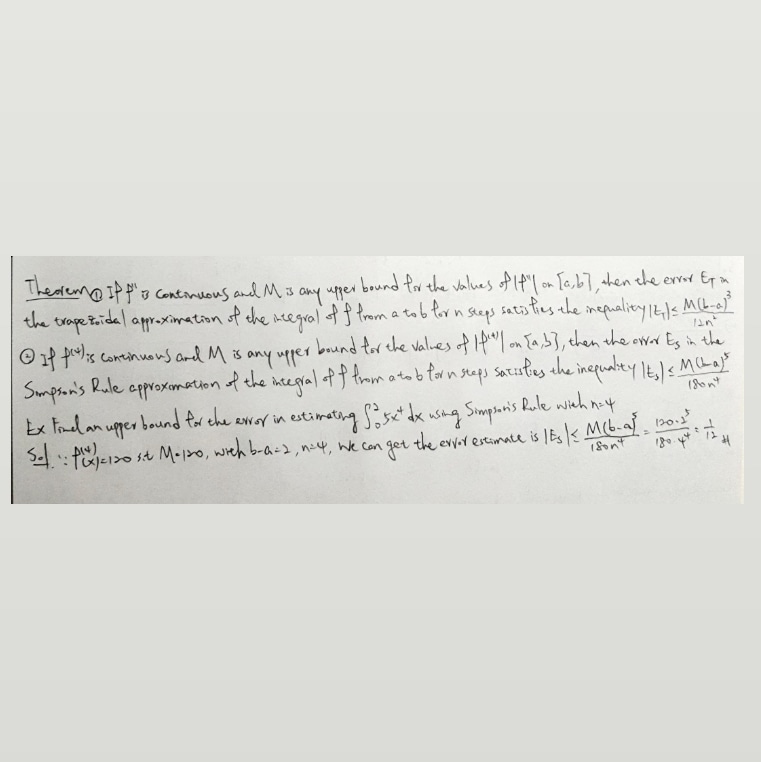 Theorem ① If f'' is continuous and M is any upper bound for the values of |f''| on [a,b], then the error E_T in
the trapezoidal approximation of the integral of f from a to b for n steps satisfies the inequality |E_T| ≤ M(b-a)³/12n²
② If f⁽⁴⁾ is continuous and M is any upper bound for the values of |f⁽⁴⁾| on [a,b], then the error E_s in the
Simpson's Rule approximation of the integral of f from a to b for n steps satisfies the inequality |E_s| ≤ M(b-a)⁵/180n⁴
Ex Find an upper bound for the error in estimating ∫₀² 5x⁴ dx using Simpson's Rule with n=4
Sol. ∵ f⁽⁴⁾(x)=120 s.t M=120, with b-a=2, n=4, we can get the error estimate is |E_s| ≤ M(b-a)⁵/180n⁴ = 120·2⁵/180·4⁴ = 1/12